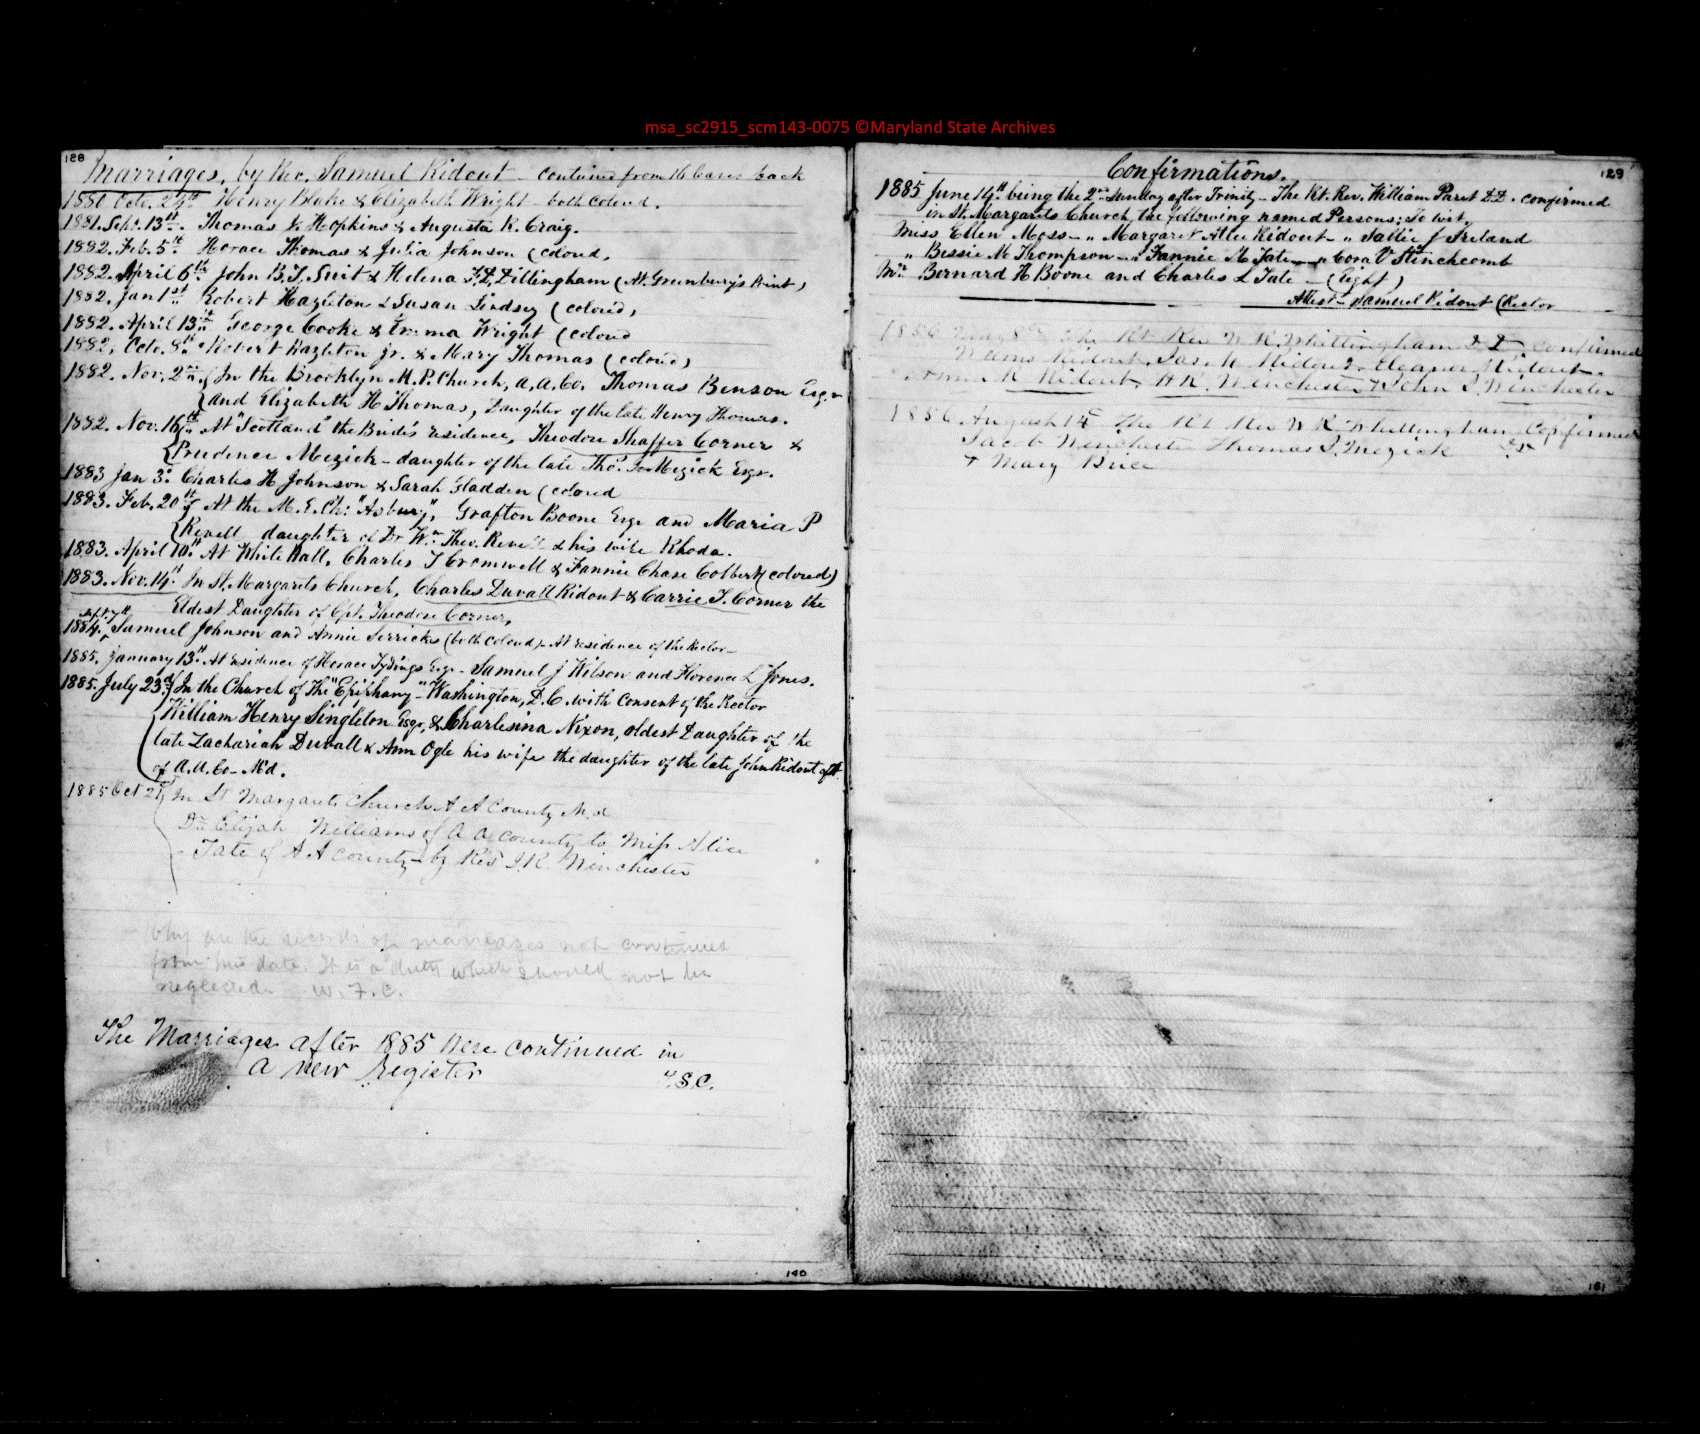 msa_sc2915_scm143-0075 ©Maryland State Archives
128
Marriages, by Rev. Samuel Ridout - Continued from 16 leaves back
1880 Octo. 29th Henry Blake & Elizabeth Wright - both colored.
1881. Sept. 13th. Thomas Hopkins & Augusta K. Craig.
1882. Feb. 5th Horace Thomas & Julia Johnson (colored,
1882. April 6th John B. T. Suit & Helena Dillingham (At Greenbury's Point)
1882. Jan 1st Robert Hazleton & Susan Lindsey (colored,
1882. April 13th George Cooke & Emma Wright (colored
1882, Octo. 8th Robert Hazleton jr. & Mary Thomas (colored)
1882. Nov. 2nd. In the Brooklyn M. P. Church, A. A. Co. Thomas Benson Esqr
and Elizabeth H Thomas, Daughter of the late Henry Thomas.
1882. Nov. 16th At "Scotland" the Bride's residence, Theodore Shaffer Corner &
Prudence Mezick - daughter of the late Tho. Mezick Esqr.
1883 Jan 3. Charles H Johnson & Sarah Gladden (colored
1883. Feb. 20th At the M. E. Ch: "Asbury", Grafton Boone Esqr and Maria P
Revell daughter of Dr Wm. Theo. Revell & his wife Rhoda.
1883. April 10th At White Hall, Charles T Cromwell & Fannie Chase Colbert (colored)
1883. Nov. 14th In St. Margarets Church, Charles Duvall Ridout & Carrie T. Corner the
Eldest Daughter of Cpt. Theodore Corner,
1884. Samuel Johnson and Annie Serricks (both colored) - At residence of the Rector -
1885. January 13th At residence of Horace Tydings Esqr - Samuel J Wilson and Florence L Jones.
1885. July 23d In the Church of The "Epiphany" - Washington, D. C. with consent of the Rector
William Henry Singleton Esqr, & Charlesina Nixon, oldest Daughter of the
late Zachariah Duvall & Ann Ogle his wife the daughter of the late John Ridout of
of A. A. Co - Md.
1885 Oct 29 In St Margarets Church A A County Md
Dr. Elijah Williams of A A County to Miss Alice
- Tate of A A County - by Rev J. R. Winchester
Why are the records of marriages not continued
from this date. It is a duty which should not be
neglected. W. F. C.
The Marriages after 1885 were continued in
a new Register
S. C.
140
Confirmations.
129
1885 June 14th being the 2nd Sunday after Trinity - The Rt. Rev. William Paret D.D. confirmed
in St. Margarets Church, the following named Persons; To wit,
Miss Ellen Moss - " Margaret Allee Ridout - " Sallie J Ireland
" Bessie M Thompson - " Fannie M Tate - " Cora V Stinchcomb
Mr. Bernard H Boone and Charles L Tate - (Eight)
Attest - Samuel Ridout (Rector
1856 The Rt Rev W R Whittingham D D, confirmed
Weems Ridout, Jas. Ridout, Eleanor Ridout.
Ridout, Winchester & John S. Winchester
1856 August 14 The Rt Rev W R Whittingham Confirmed
Jacob Winchester Thomas S. Mezick
& Mary Brice
141